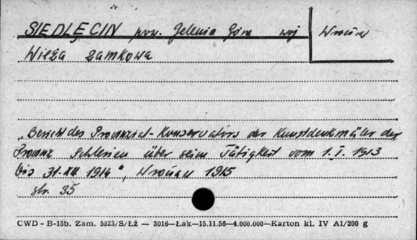 SIEDLĘCIN pow. Jelenia Góra woj Wrocław
Wieża zamkowa
„Bericht des Provinzial-Konservators der Kunstdenkmäler der
Provinz Schlesien über seine Tätigkeit vom 1.I.1913
bis 31.XII 1914", Wrocław 1915
str. 35
CWD - B-15b. Zam. 5323/S/Łż — 3016—Łak—15.11.56—4.000.000—Karton kl. IV A1/200 g